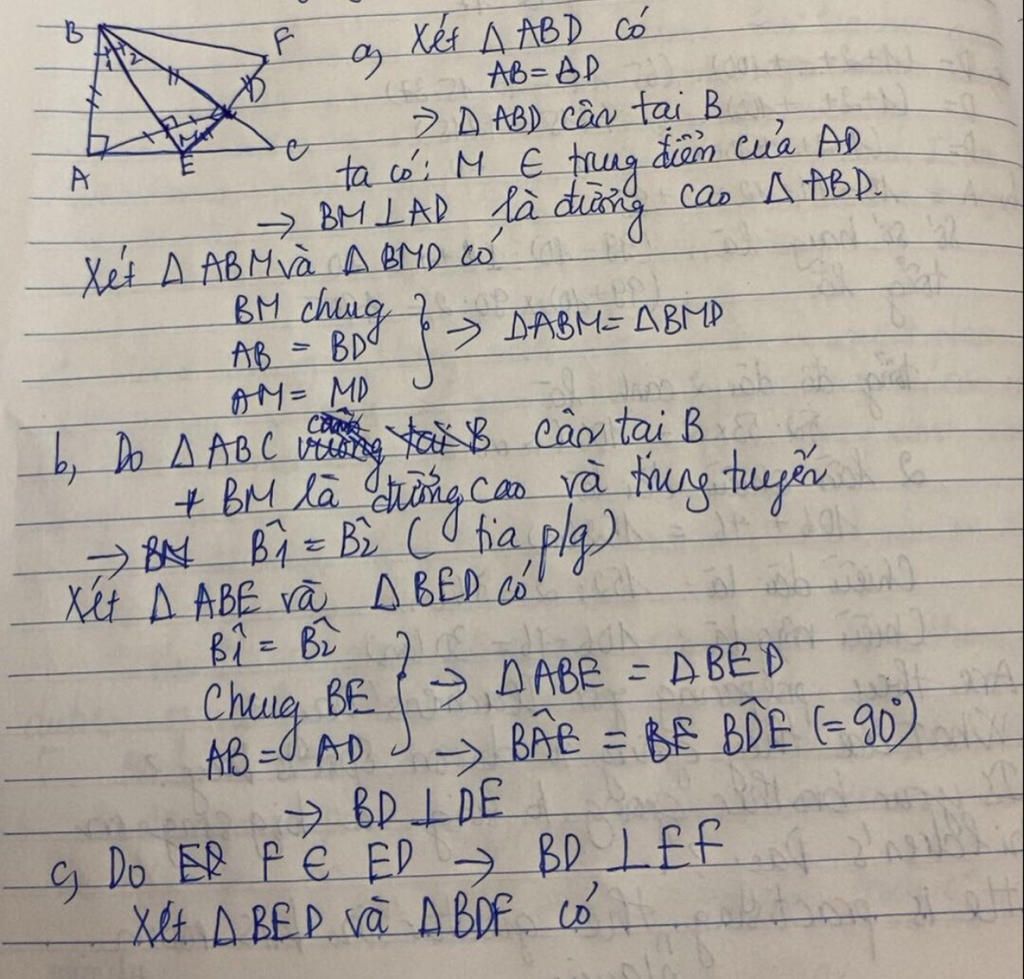 B
F
1 2
D
M
A
E
C
a, Xét Δ ABD có
AB = BD
→ Δ ABD cân tại B
ta có: M ∈ trung điểm của AD
→ BM ⊥ AD là đường cao Δ ABD.
Xét Δ ABM và Δ BMD có
BM chung
AB = BD
AM = MD
} → ΔABM = ΔBMD
b, Do Δ ABC cân tại B
+ BM là đường cao và trung tuyến
→ B̂1 = B̂2 ( tia p/g)
Xét Δ ABE và Δ BED có
B̂1 = B̂2
Chung BE
AB = AD
} → ΔABE = ΔBED
→ BÂE = BD̂E (= 90°)
→ BD ⊥ DE
c, Do F ∈ ED → BD ⊥ EF
Xét Δ BED và Δ BDF có